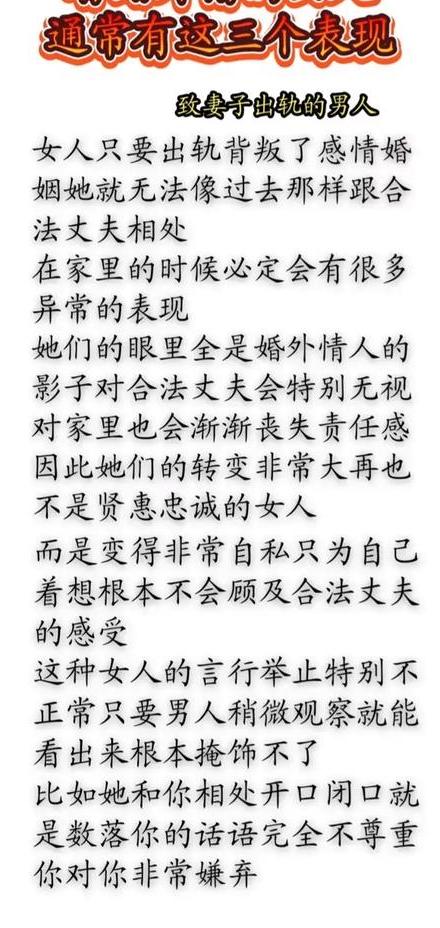 通常有这三个表现
致妻子出轨的男人
女人只要出轨背叛了感情婚
姻她就无法像过去那样跟合
法丈夫相处
在家里的时候必定会有很多
异常的表现
她们的眼里全是婚外情人的
影子对合法丈夫会特别无视
对家里也会渐渐丧失责任感
因此她们的转变非常大再也
不是贤惠忠诚的女人
而是变得非常自私只为自己
着想根本不会顾及合法丈夫
的感受
这种女人的言行举止特别不
正常只要男人稍微观察就能
看出来根本掩饰不了
比如她和你相处开口闭口就
是数落你的话语完全不尊重
你对你非常嫌弃